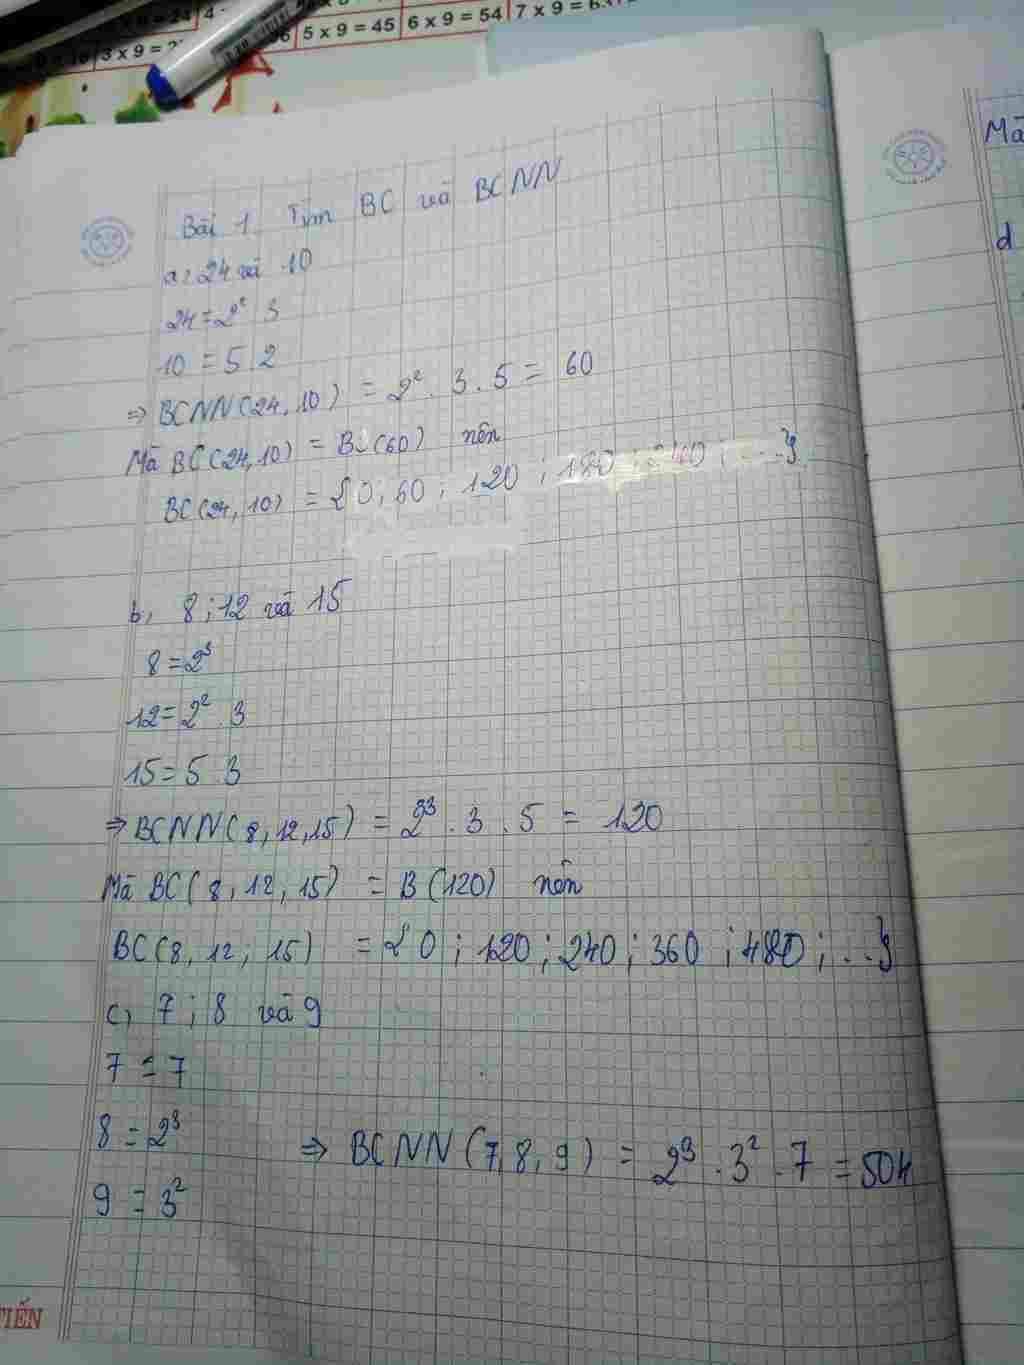 5 x 9 = 45 6 x 9 = 54 7 x 9 = 63
3 x 9 =
Bài 1. Tìm BC và BCNN
a, 24 và 10
24 = 2² 3
10 = 5 2
⇒ BCNN(24, 10) = 2² . 3 . 5 = 60
Mà BC(24, 10) = B(60) nên
BC(24, 10) = {0; 60 ; 120 ; 180 ; 240 ; ...}
b, 8 ; 12 và 15
8 = 2³
12 = 2² . 3
15 = 5 3
⇒ BCNN(8, 12, 15) = 2³ . 3 . 5 = 120
Mà BC(8, 12, 15) = B(120) nên
BC(8, 12; 15) = {0 ; 120 ; 240 ; 360 ; 480 ; ...}
c, 7 ; 8 và 9
7 = 7
8 = 2³
⇒ BCNN(7, 8, 9) = 2³ . 3² . 7 = 504
9 = 3²
TIẾN
Mà
d